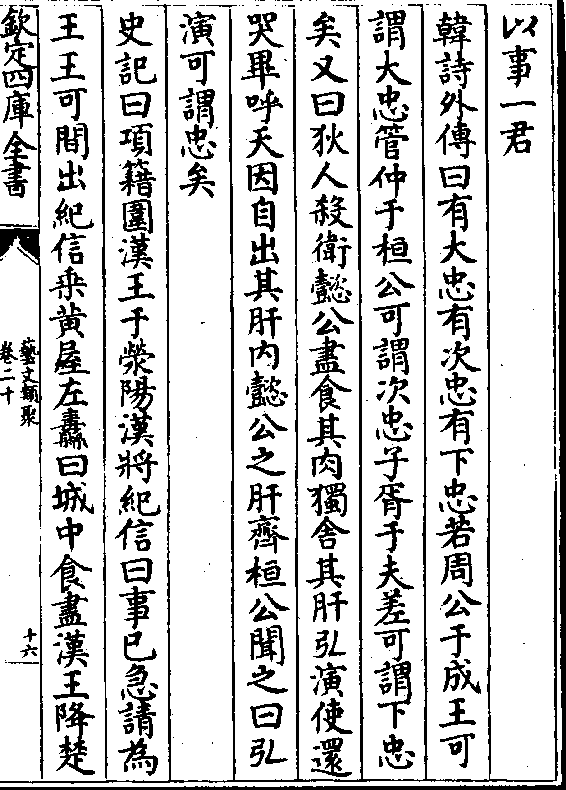 以事一君
韓詩外傳曰有大忠有次忠有下忠若周公于成王可
謂大忠管仲于桓公可謂次忠子胥于夫差可謂下忠
矣又曰狄人殺衛懿公盡食其肉獨舍其肝弘演使還
哭畢呼天因自出其肝内懿公之肝齊桓公聞之曰弘
演可謂忠矣
史記曰項籍圍漢王于滎陽漢將紀信曰事已急請為
王王可間出紀信乘黄屋左纛曰城中食盡漢王降楚
欽定四庫全書
藝文類聚
卷二十
十六